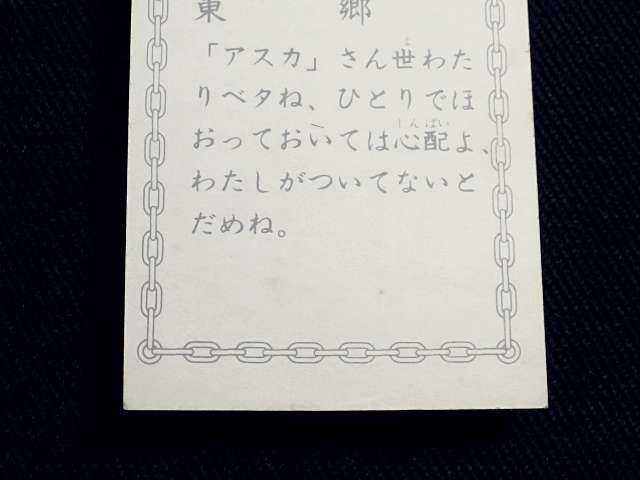 東　郷
「アスカ」さん世わた
りベタね、ひとりでほ
おっておいては心配よ、
わたしがついてないと
だめね。